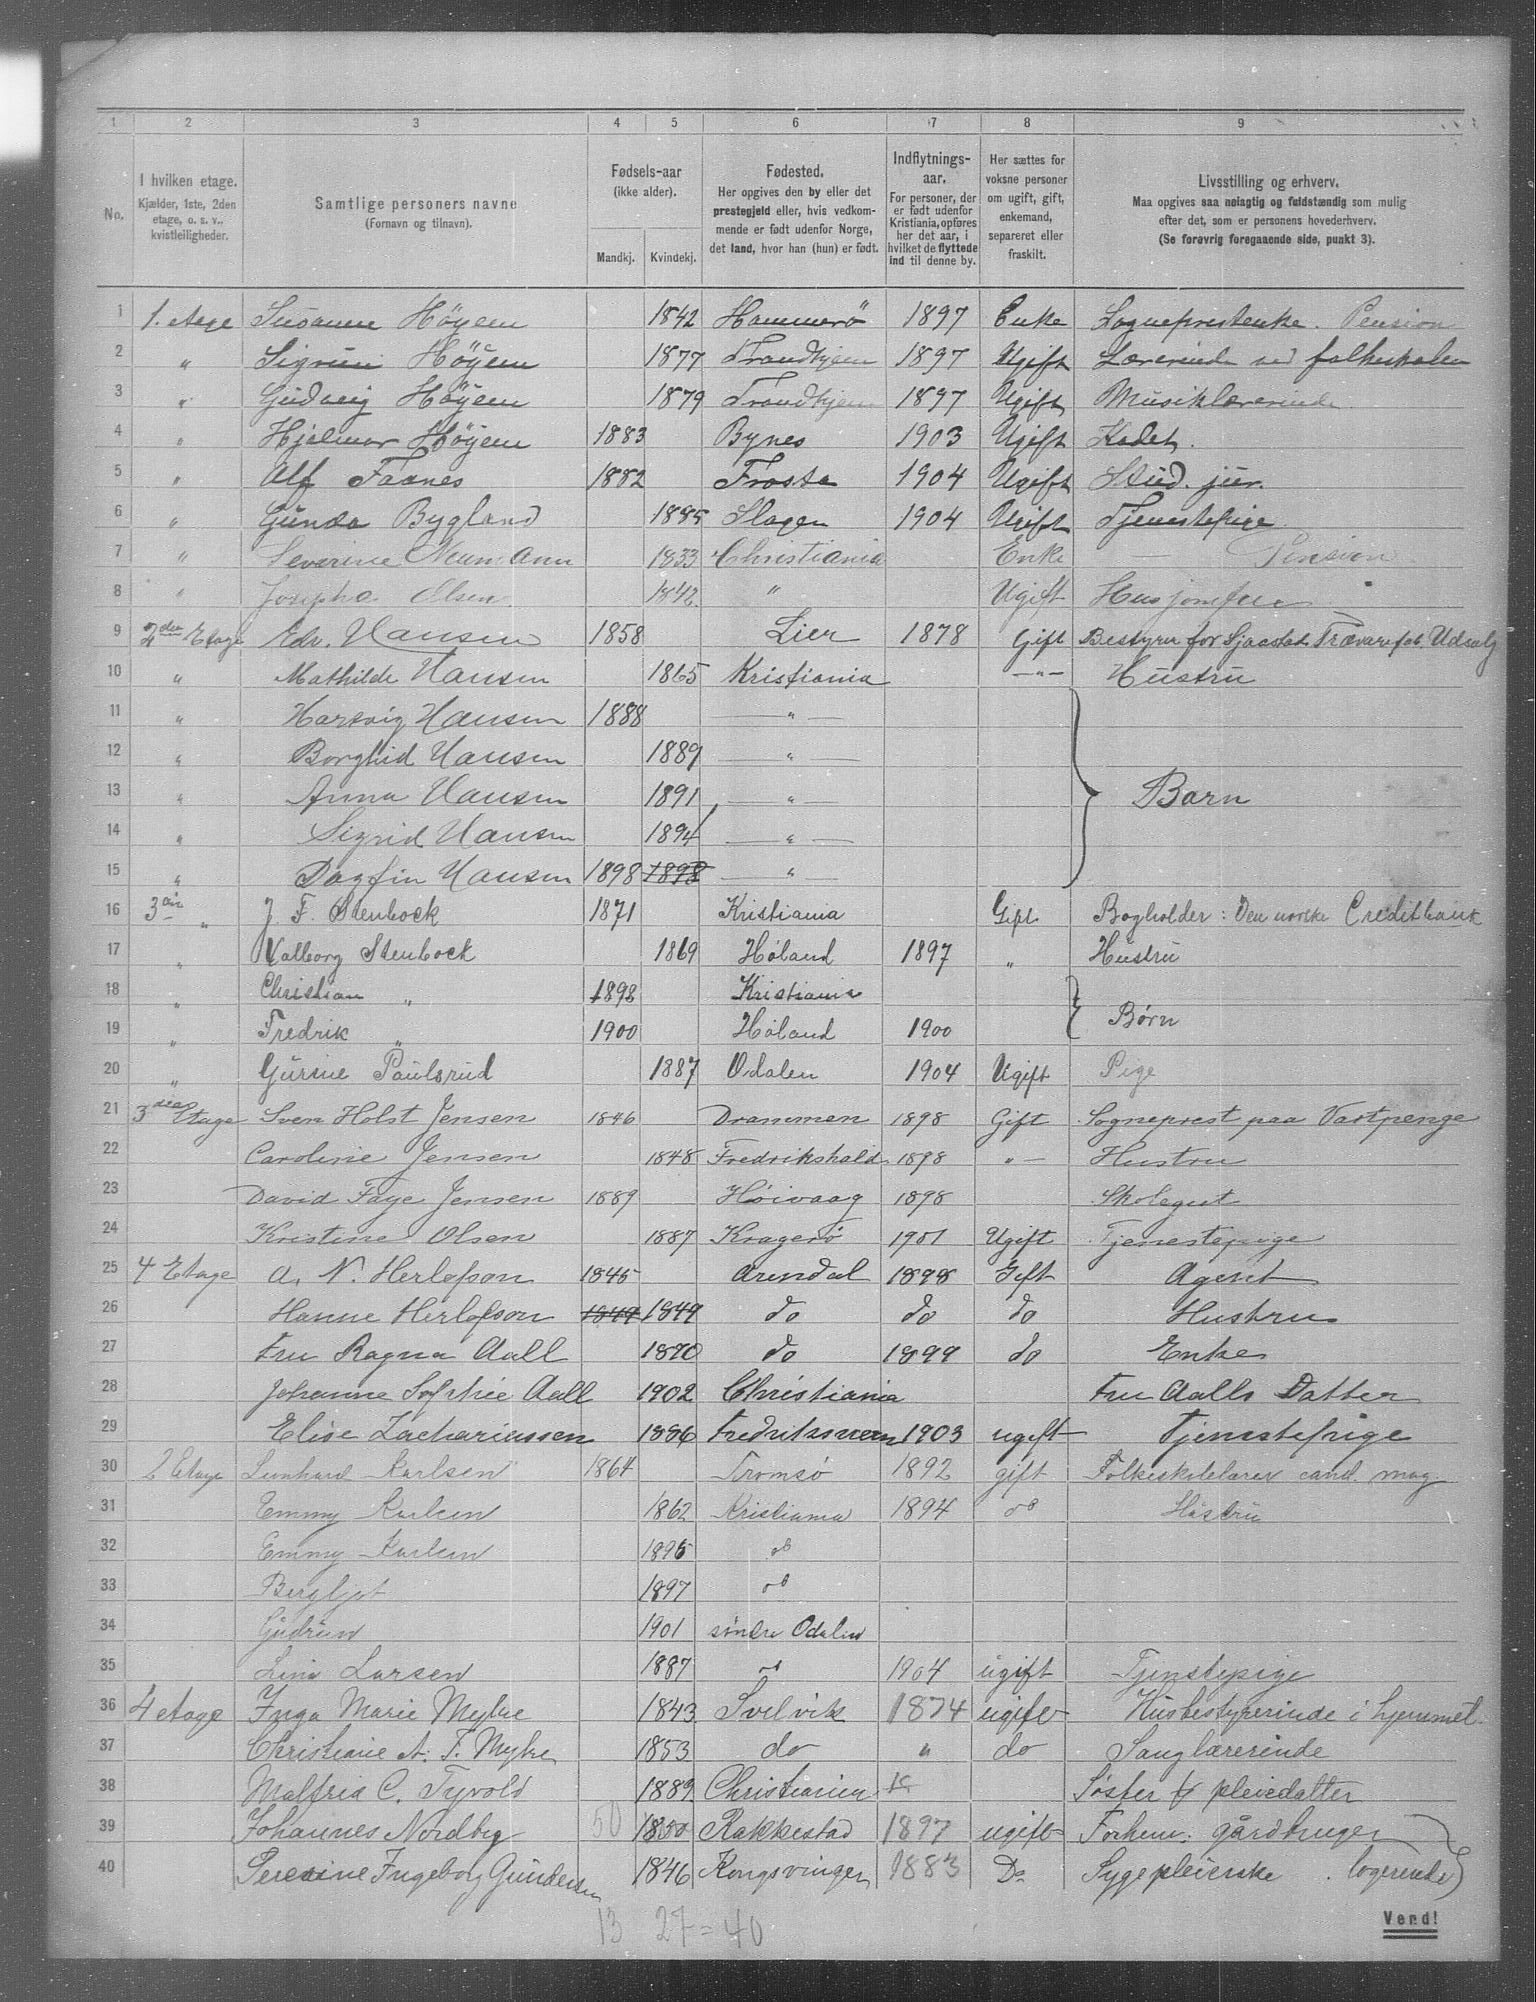 1 2 3 4 5 6 7 8 9
No.
I hvilken etage.
Kjælder, 1ste, 2den
etage, o. s. v..
kvistleiligheder.
Samtlige personers navne
(Fornavn og tilnavn).
Fødsels-aar
(ikke alder).
Mandkj. Kvindekj.
Fødested.
Her opgives den by eller det
prestegjeld eller, hvis vedkom-
mende er født udenfor Norge,
det land, hvor han (hun) er født.
Indflytnings-
aar.
For personer, der
er født udenfor
Kristiania, opføres
her det aar, i
hvilket de flyttede
ind til denne by.
Her sættes for
voksne personer
om ugift, gift,
enkemand,
separeret eller
fraskilt.
Livsstilling og erhverv.
Maa opgives saa nøiagtig og fuldstændig som mulig
efter det, som er personens hovederhverv.
(Se forøvrig foregaaende side, punkt 3).
1 1. etage Susanne Höyem 1842 Hammerö 1897 Enke Sogneprestenke. Pension
2 " Sigrun Höyem 1877 Trondhjem 1897 Ugift Lærerinde ved folkeskolen
3 " Gudveig Höyem 1879 Trondhjem 1897 Ugift Musiklærerinde
4 " Hjalmar Höyem 1883 Bynes 1903 Ugift Kadet.
5 " Alf Faanes 1882 Frosta 1904 Ugift Stud. jur.
6 " Gunda Bygland 1885 Slagen 1904 Ugift Tjenestepige
7 " Severine Neumann 1833 Christiania Enke — Pension
8 " Josepha Olsen 1842 " Ugift Husjomfru
9 2den Etage Edv. Hansen 1858 Lier 1878 Gift Bestyrer for Sjaastad Trævarefab. Udsalg
10 " Mathilde Hansen 1865 Kristiania —"— Hustru
11 " Hartvig Hansen 1888 —"—
12 " Borghild Hansen 1889 —"—
13 " Anna Hansen 1891 —"— Barn
14 " Sigrid Hansen 1894 —"—
15 " Dagfin Hansen 1898 1898 —"—
16 3die " J. F. Stenbock 1871 Kristiania Gift Bogholder: Den norske Creditbank
17 " Valborg Stenbock 1869 Høland 1897 " Hustru
18 " Christian " 1898 Kristiania
Børn
19 " Fredrik " 1900 Høland 1900
20 " Gurine Paulsrud 1887 Odalen 1904 Ugift Pige
21 3die Etage Sven Holst Jensen 1846 Drammen 1898 Gift Sogneprest paa Vartpenge
22 Caroline Jensen 1848 Fredrikshald 1898 "— Hustru
23 David Faye Jensen 1889 Høivaag 1898 Skolegut
24 Kristine Olsen 1887 Kragerö 1901 Ugift Tjenestepige
25 4 Etage A. N. Herlofson 1845 Arendal 1898 Gift Agent
26 Hanne Herlofson 1849 1849 do do do Hustru
27 Fru Ragna Aall 1870 do 1899 do Enke
28 Johanne Sophie Aall 1902 Christiania Fru Aalls Datter
29 Elise Zachariassen 1886 Fredriksværn 1903 ugift Tjenestepige
30 2 Etage Leonhard Karlsen 1864 Tromsø 1892 gift Folkeskolelærer cand. mag.
31 Emmy Karlsen 1862 Kristiania 1894 do Hustru
32 Emmy Karlsen 1895 do
33 Bergljot 1897 do
34 Gudrun 1901 søndre Odalen
35 Lina Larsen 1887 do 1904 ugift Tjenstepige
36 4 etage Inga Marie Myhre 1843 Svelvik 1874 ugift Husbestyrerinde i hjemmet.
37 Christiane A. F. Myhre 1853 do " do Sanglærerinde
38 Malfrid C. Tyvold 1889 Christiania Søster & pleiedatter
39 Johannes Nordby 50 1850 Rakkestad 1897 ugift Forhen. gårdbruger
40 Serevine Ingeborg Gundersen 1846 Kongsvinger 1883 Do Sygepleierske. logerende
13 27 = 40
Vend!